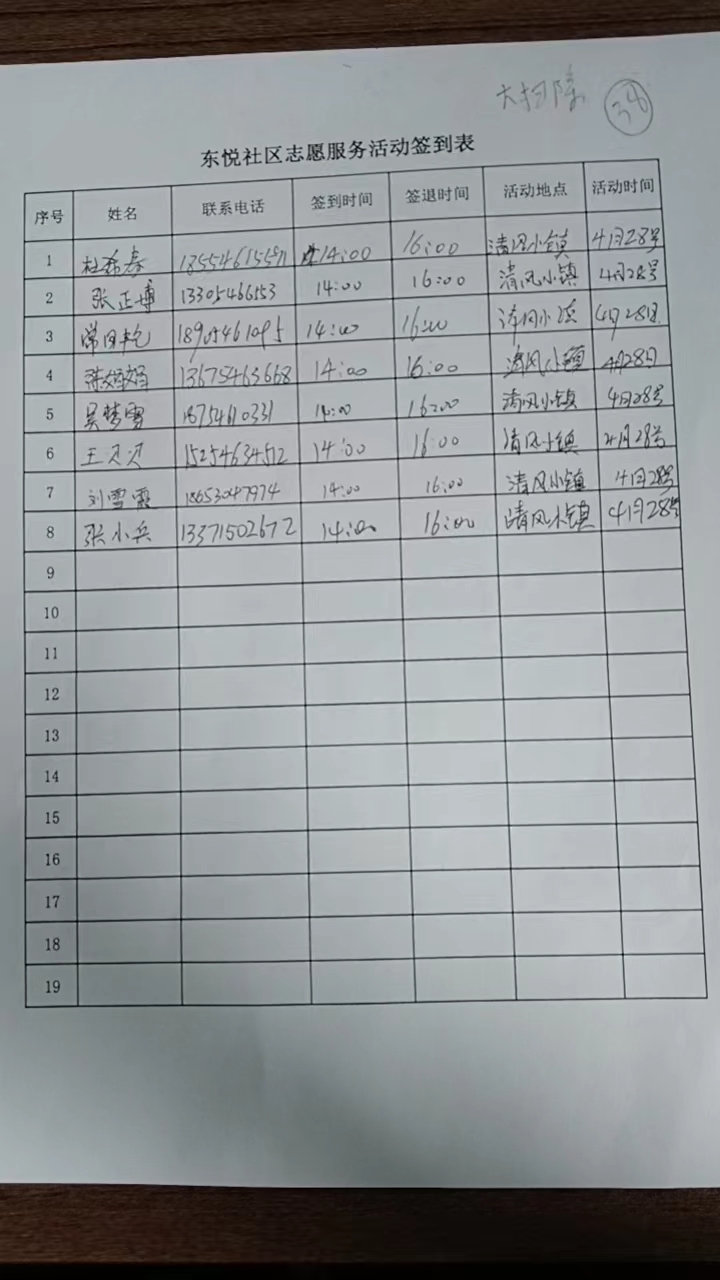 大扫除 38
东悦社区志愿服务活动签到表
序号 姓名 联系电话 签到时间 签退时间 活动地点 活动时间
1 杜希春 14:00 16:00 清风小镇 4月28号
2 张正博 13305466153 14:00 16:00 清风小镇 4月28号
3 18905461095 14:00 16:00 清风小镇 4月28日
4 13675463668 14:00 16:00 清风小镇 4月28日
5 吴梦雪 18754610331 14:00 16:00 清风小镇 4月28号
6 王贝贝 15254634512 14:00 16:00 清风小镇 4月28号
7 刘雪霞 18653047974 14:00 16:00 清风小镇 4月28号
8 张小兵 13371502672 14:00 16:00 清风小镇 4月28号
9
10
11
12
13
14
15
16
17
18
19